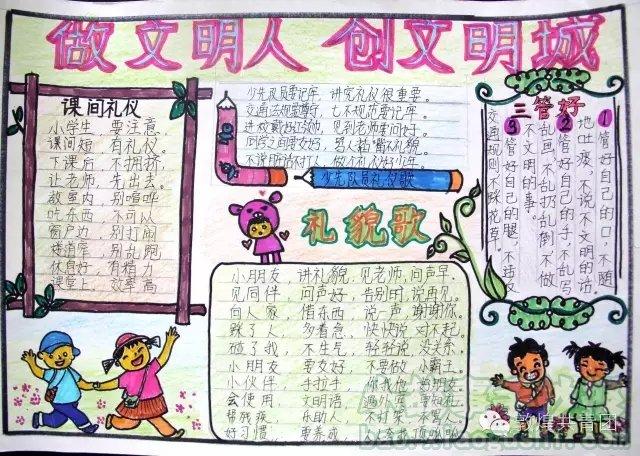 做文明人 创文明城
课间礼仪
小学生，要注意，
课间短，有礼仪。
下课后，不拥挤，
让老师，先出去。
教室内，别喧哗
吃东西，不可以
窗户边，别打闹
楼道窄，别乱跑
休息好，有精力
课堂上，效率高
少先队员要记牢，讲究礼仪很重要。
交通法规要遵守，七不规范要记牢。
进校戴好红领巾，见到老师要问好。
同学之间要友好，
做个礼仪好少年。
少先队员礼仪歌
三管好
1管好自己的口，不随
地吐痰，不说不文明的话。
2管好自己的手，不乱写
乱画，不乱扔乱倒，不做
不文明的事。
3管好自己的腿，不违反
交通规则不踩花草。
礼貌歌
小朋友，讲礼貌，见老师，问声早。
见同伴，问声好，告别时，说再见。
向人家，借东西，说一声，谢谢你。
踩了人，多着急，快快说，对不起。
碰了我，不生气，轻轻说，没关系。
小朋友，要友好，不要做，小霸王。
小伙伴，手拉手，你我他，
会使用，文明语，
帮残疾，乐助人，不打架，不骂人
好习惯，要养成，
敦煌共青团